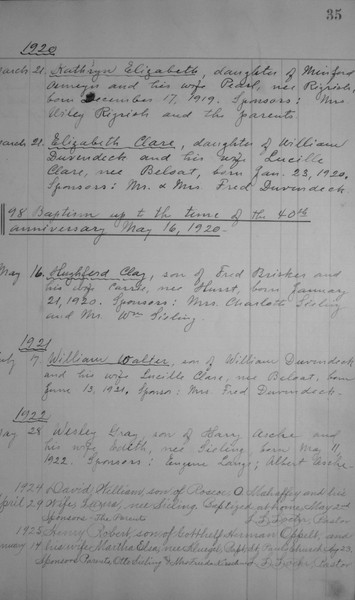 35
1920
March 21. Kathryn Elizabeth, daughter of
and his wife Pearl, nee
born December 17, 1919. Sponsors: Mrs
Wiley and the parents.
March 21. Elizabeth Clare, daughter of William
Duvendeck and his wife Lucille
Clare, nee Beloat, born Jan. 23, 1920.
Sponsors: Mr. & Mrs Fred Duvendeck
98 Baptism up to the time of the 40th
anniversary May 16, 1920.
May 16. Clay, son of Fred and
his wife Carrie, nee Hurst, born January
21, 1920. Sponsors: Mrs. Charlotte Sieling
and Mr. Wm Sieling.
1921
July 7. William Walter, son of William Duvendeck
and his wife Lucille Clare, nee Beloat, born
June 13, 1921. Sponsor: Mrs. Fred Duvendeck.
1922
May 28 Wesley Gray, son of Harry and
his wife Edith, nee Sieling born May 11
1922. Sponsors: Eugene Lange; Albert
1924 David William, son of Roscoe O. Mahaffey and his
April 29 wife nee Sieling. Baptized at home May 2nd
Sponsors The Parents Pastor
1925 Henry Robert, son of Gotthelf Herman Oppelt, and
January 14 his wife Martha Elsa, nee Church Aug 23,
Sponsors Parents, Otto Sieling & Mrs Pastor